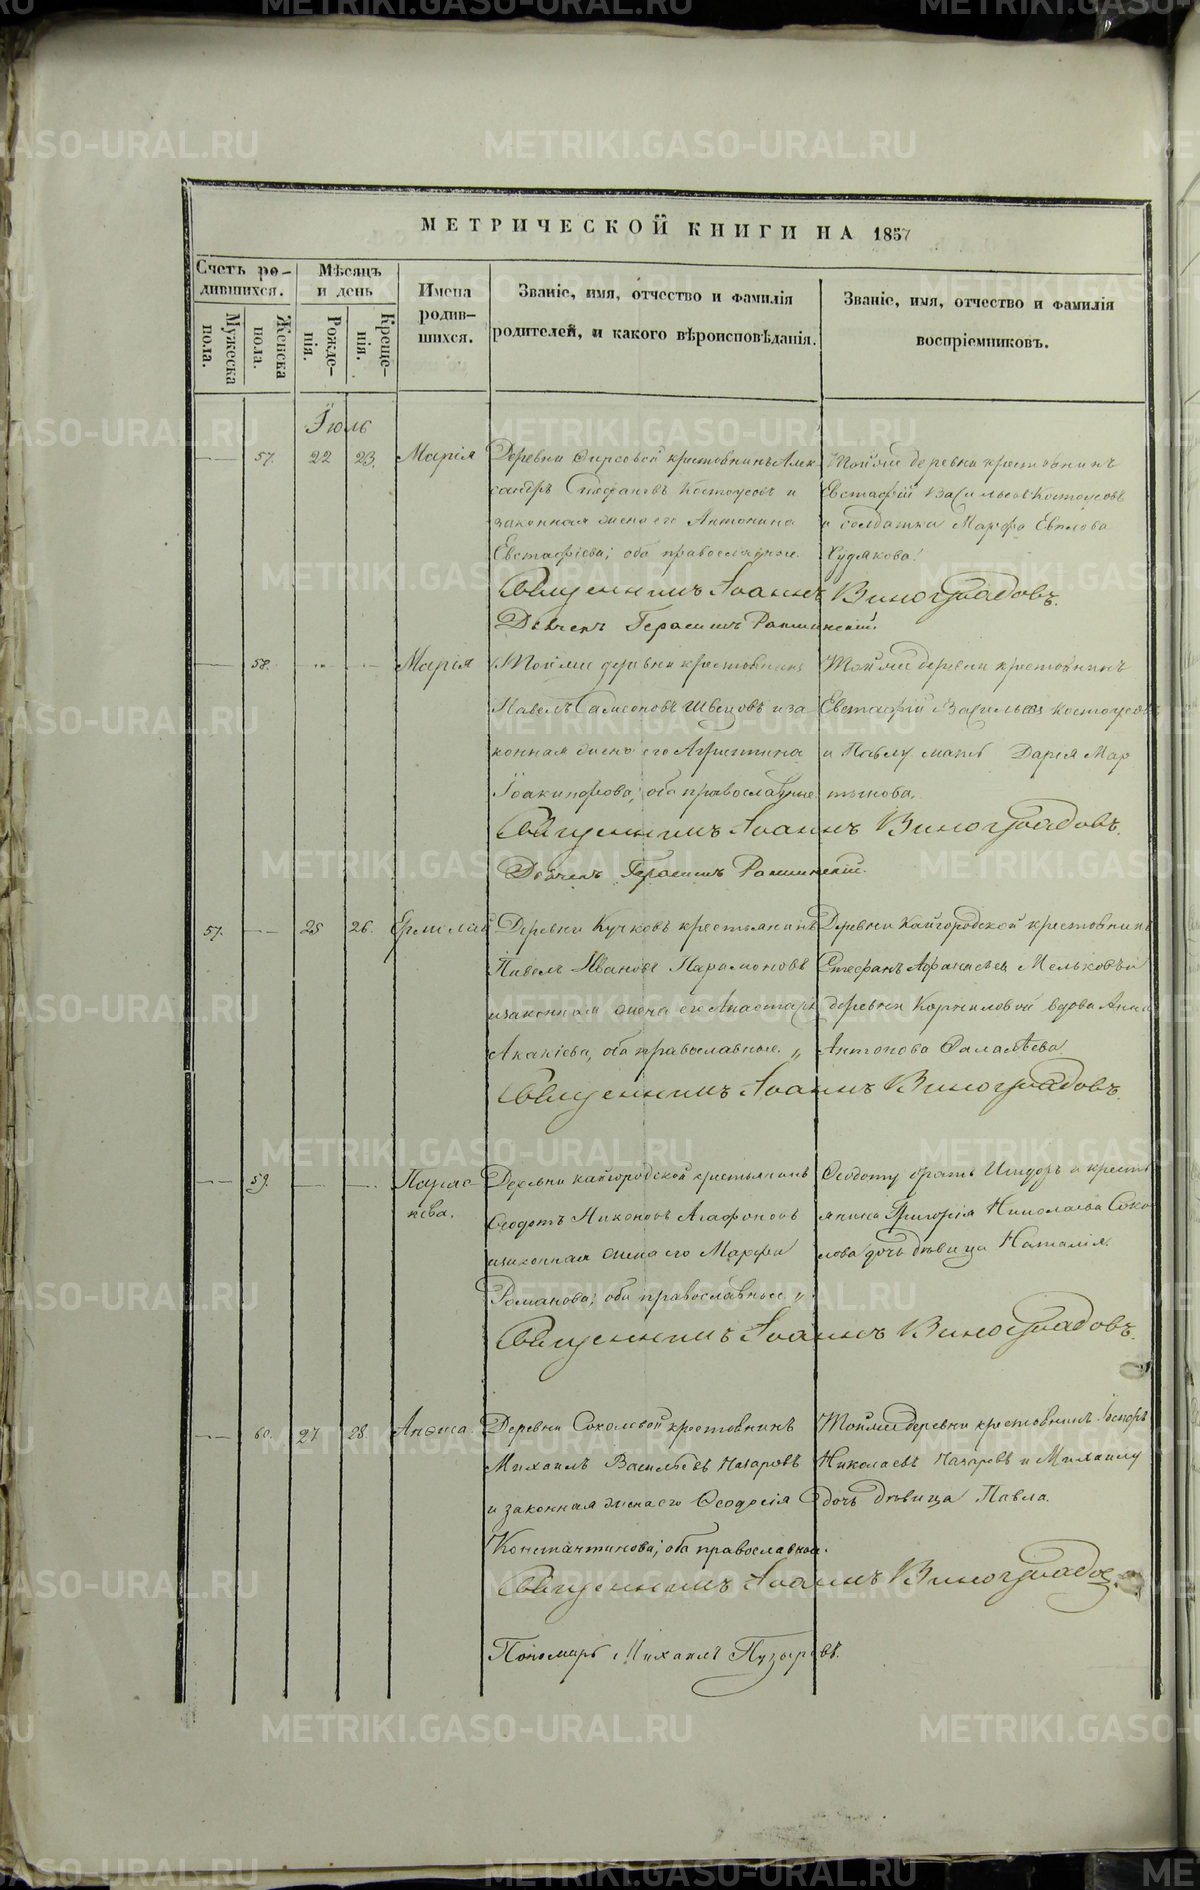 МЕТРИЧЕСКОЙ КНИГИ НА 1857
Счетъ ро-
дившихся.
Мѣсяцъ
и день
Имена
родив-
шихся.
Званіе, имя, отчество и фамилія
родителей, и какого вѣроисповѣданія.
Званіе, имя, отчество и фамилія
воспріемниковъ.
Мужеска
пола.
Женска
пола.
Рожде-
нія.
Креще-
нія.
Іюль
57. 22 23. Марія
Деревни крестьянинъ Алек
сандръ Стефановъ Костоусовъ и
законная жена его Антонина
Евстафіева; оба православные.
Тойже деревни крестьянинъ
Евстафій Васильевъ Костоусовъ
и солдатка Марфа
Худякова.
Священникъ Іоаннъ Виноградовъ.
Дьячекъ Герасимъ
58. Марія
Тойже деревни крестьянинъ
Павелъ Самсоновъ Швецовъ и за
конная жена его
оба православные
Тойже деревни крестьянинъ
Евстафій Васильевъ Костоусовъ
и Павлу мать Дарія Мар
тынова.
Священникъ Іоаннъ Виноградовъ.
Дьячекъ Герасимъ
57. 25 26. Ермолай
Деревни крестьянинъ
Павелъ Ивановъ Парамоновъ
и законная жена его
Акакіева, оба православные. „
Деревни Кайгородской крестьянинъ
Стефанъ Афанасьевъ Мельковъ и
деревни Корниловой вдова Анна
Антонова
Священникъ Іоаннъ Виноградовъ.
59. Парас-
кева.
Деревни Кайгородской крестьянинъ
Ѳеодотъ Никоновъ Агафоновъ
и законная жена его Марфа
Романова; оба православные. „
Ѳеодоту братъ Исидоръ и кресть
янина Григорія Николаева Соко
лова дочь дѣвица Наталія.
Священникъ Іоаннъ Виноградовъ.
60. 27 28. Анѳиса
Деревни Соколовой крестьянинъ
Михаилъ Васильевъ Назаровъ
и законная жена его Ѳеодосія
Константинова; оба православные.
Тойже деревни крестьянинъ
Николаевъ Назаровъ и Михаилу
дочь дѣвица Павла.
Священникъ Іоаннъ Виноградовъ.
Пономарь Михаилъ Пузыревъ.
METRIKI.GASO-URAL.RU